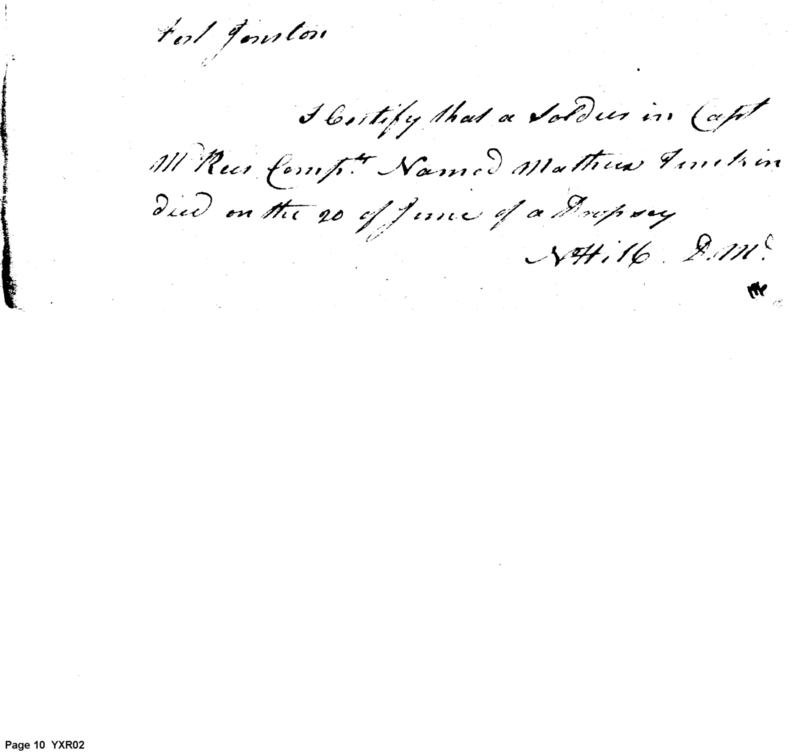 Fort Jonston
I Certify that a Soldier in Capt
McRees Compy. Named Mathew
died on the 20 of June of a Dropsey
N Hill D. Mc.
Page 10 YXR02